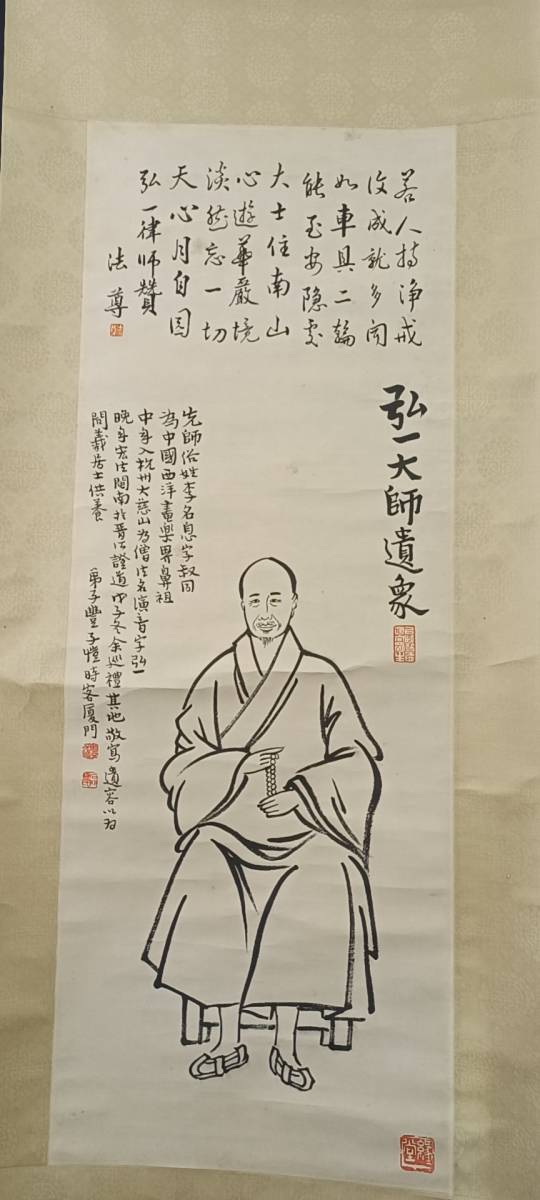 若人持淨戒
復成就多聞
如車具二輪
能至安隱處
大士住南山
心遊華嚴境
淡然忘一切
天心月自圓
弘一律師贊
法尊
弘一大師遺象
先師俗姓李名息字叔同
為中國西洋畫樂界鼻祖
中年入杭州大慈山為僧法名演音字弘一
晚年宏法閩南於晉江證道戊子冬余巡禮其地敬寫遺容以為
間義居士供養
弟子豐子愷時客廈門
緣緣堂